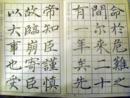 命於危難之
間爾來二十
有一年矣先
帝知臣謹慎
故臨崩寄臣
以大事也受